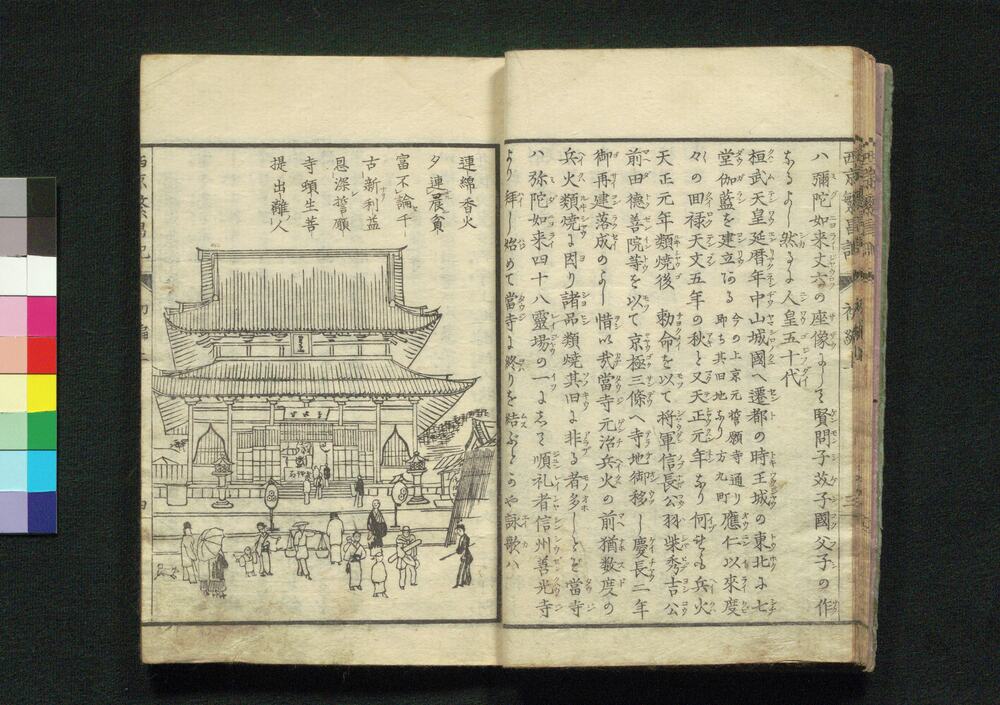 ハ彌陀如来丈六の座像にして賢問子芥子國父子の作
なるよし然るに人皇五十代
桓武天皇延暦年中山城國へ遷都の時王城の東北に七
堂伽藍を建立ある 今の上京元誓願寺通り 即ち其旧地なり方九町 應仁以來度
々の回禄天文五年の秋と又天正元年なり何せも兵火
天正元年類焼後 勅命を以て将軍信長公羽柴秀吉公
前田德善院等を以て京極三條へ寺地御移し慶長二年
御再建落成のよし惜い哉當寺元治兵火の前猶数度の
兵火類焼に因り諸品類焼其旧に非る者多しと當寺
ハ弥陀如来四十八靈場の一にして順礼者信州善光寺
より拜し始めて當寺に終りを結ぶとかや詠歌ハ
連綿香火
夕連晨貧
富不論千
古新利益
恩深誓願
寺頭生苦
提出離人
西京繁昌記
初編
四